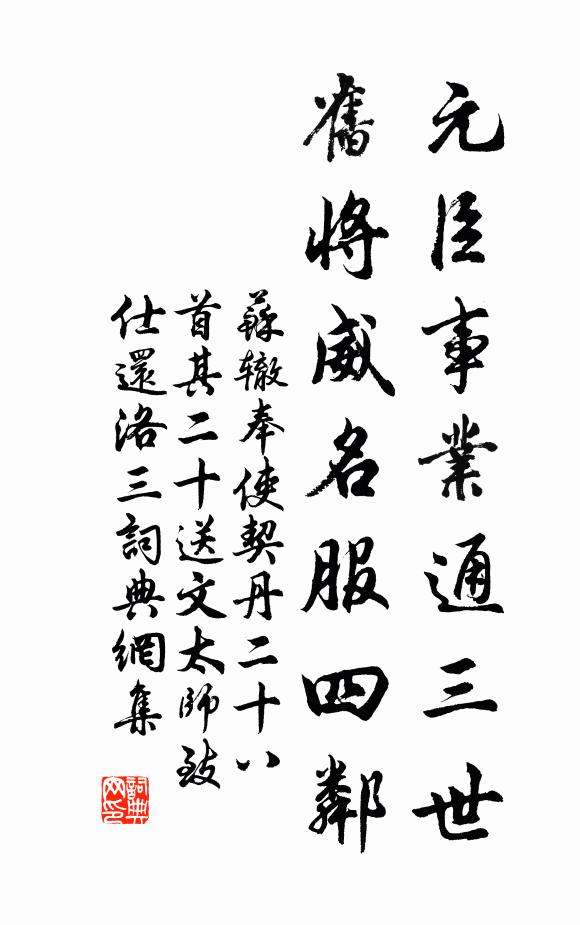 元臣事業通三世
舊將威名服四鄰
蘇轍奉使契丹二十八
首其二十送文太師致
仕還洛三詞典網集
詞典
网印